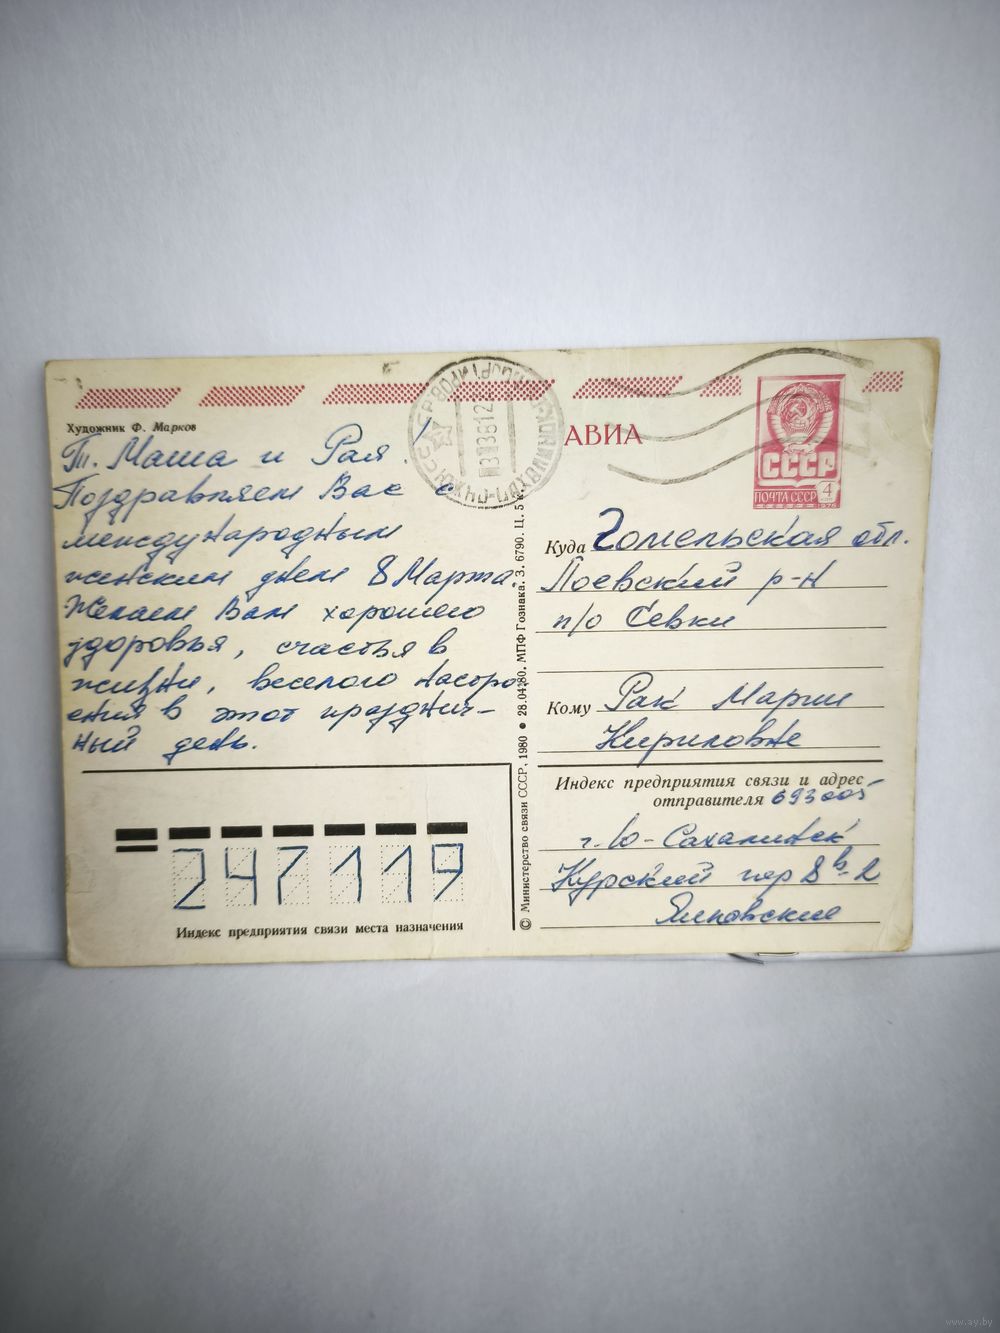 Художник Ф. Марков
Т. Маша и Рая!
Поздравляем Вас с
международным
женским днем 8 Марта.
Желаем Вам хорошего
здоровья, счастья в
жизни, веселого настро
ения в этот празднич-
ный день.
247119
Индекс предприятия связи места назначения
© Министерство связи СССР, 1980 • 28.04.80. МПФ Гознака. З. 6790. Ц. 5 к.
АВИА
СССР
ПОЧТА СССР
4
Куда Гомельская обл.
Лоевский р-н
п/о Севки
Кому Рак Марии
Кириловне
Индекс предприятия связи и адрес
отправителя 693005
г. Ю-Сахалинск
Курский пер 8в-2
www.ay.by